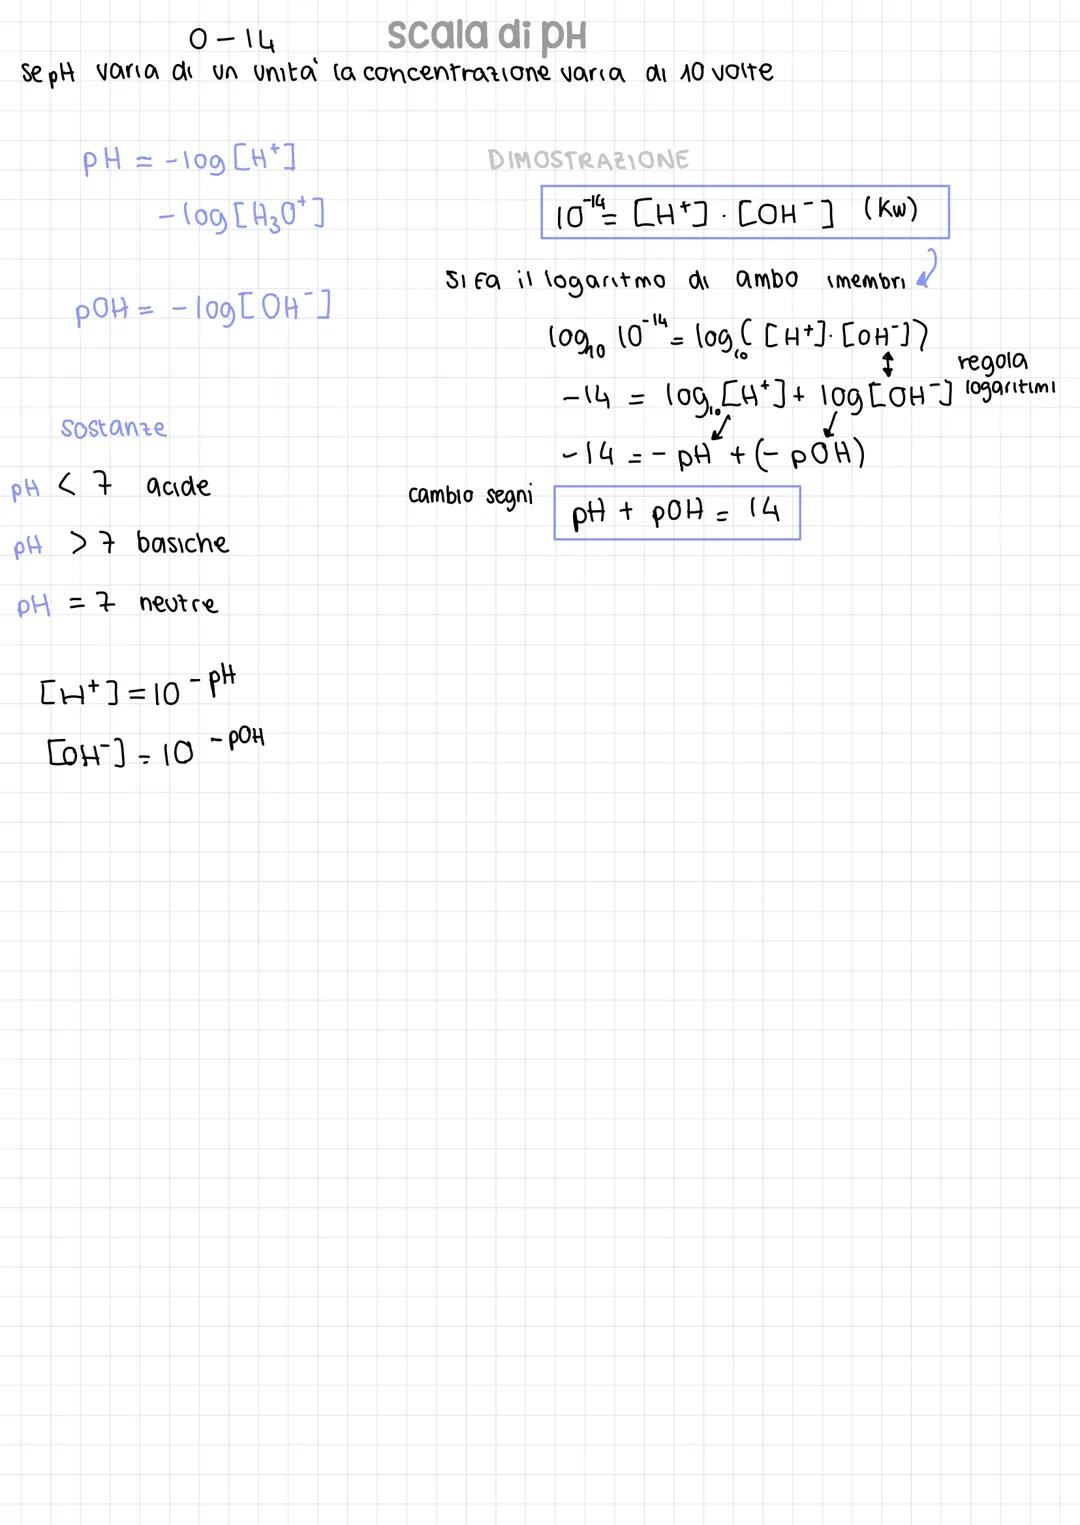 0-14 scala di pH
se pH varia di un unità la concentrazione varia di 10 volte
pH = -log [H⁺]
-log [H₃O⁺]
pOH = -log [OH⁻]
sostanze
pH < 7 acide
pH > 7 basiche
pH = 7 neutre
[H⁺] = 10⁻ᵖᴴ
[OH⁻] = 10⁻ᵖᴼᴴ
DIMOSTRAZIONE
10⁻¹⁴ = [H⁺] · [OH⁻] (Kw)
si fa il logaritmo di ambo i membri
log₁₀ 10⁻¹⁴ = log₁₀ ( [H⁺] · [OH⁻] )
-14 = log₁₀ [H⁺] + log [OH⁻] regola logaritimi
-14 = - pH + (- pOH)
cambio segni pH + pOH = 14